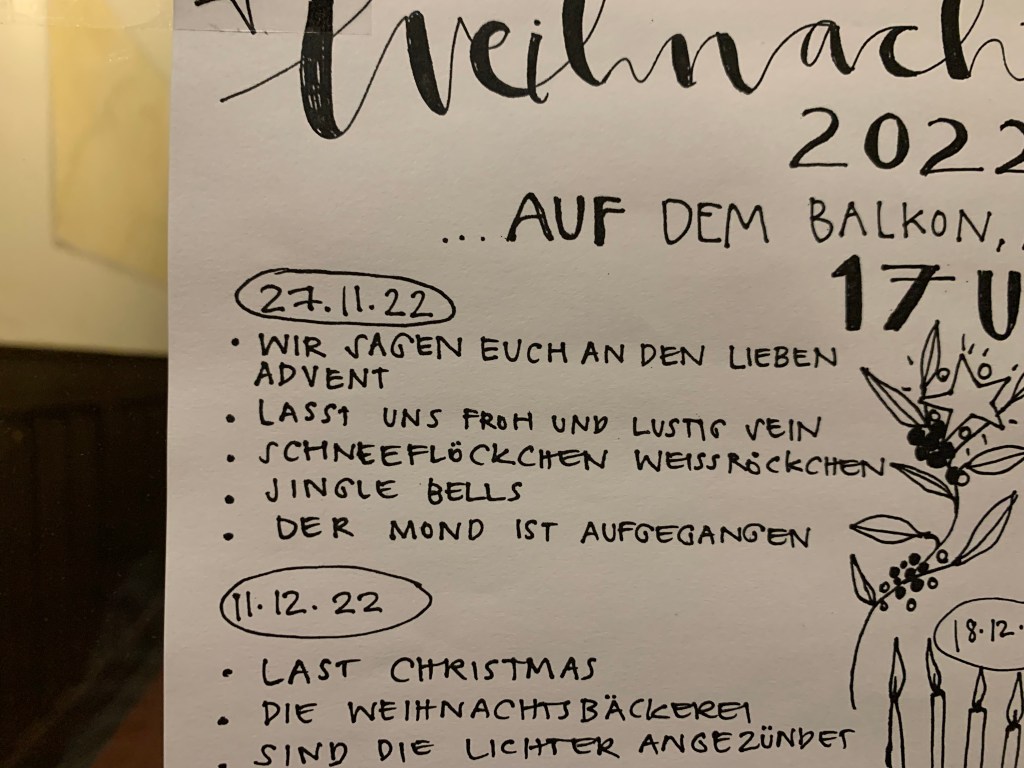 Weihnach
2022
... AUF DEM BALKON,
17 U
27.11.22
• WIR SAGEN EUCH AN DEN LIEBEN
ADVENT
• LASST UNS FROH UND LUSTIG SEIN
• SCHNEEFLÖCKCHEN WEISSRÖCKCHEN
• JINGLE BELLS
• DER MOND IST AUFGEGANGEN
11.12.22
18.12.
• LAST CHRISTMAS
• DIE WEIHNACHTSBÄCKEREI
• SIND DIE LICHTER ANGEZÜNDET